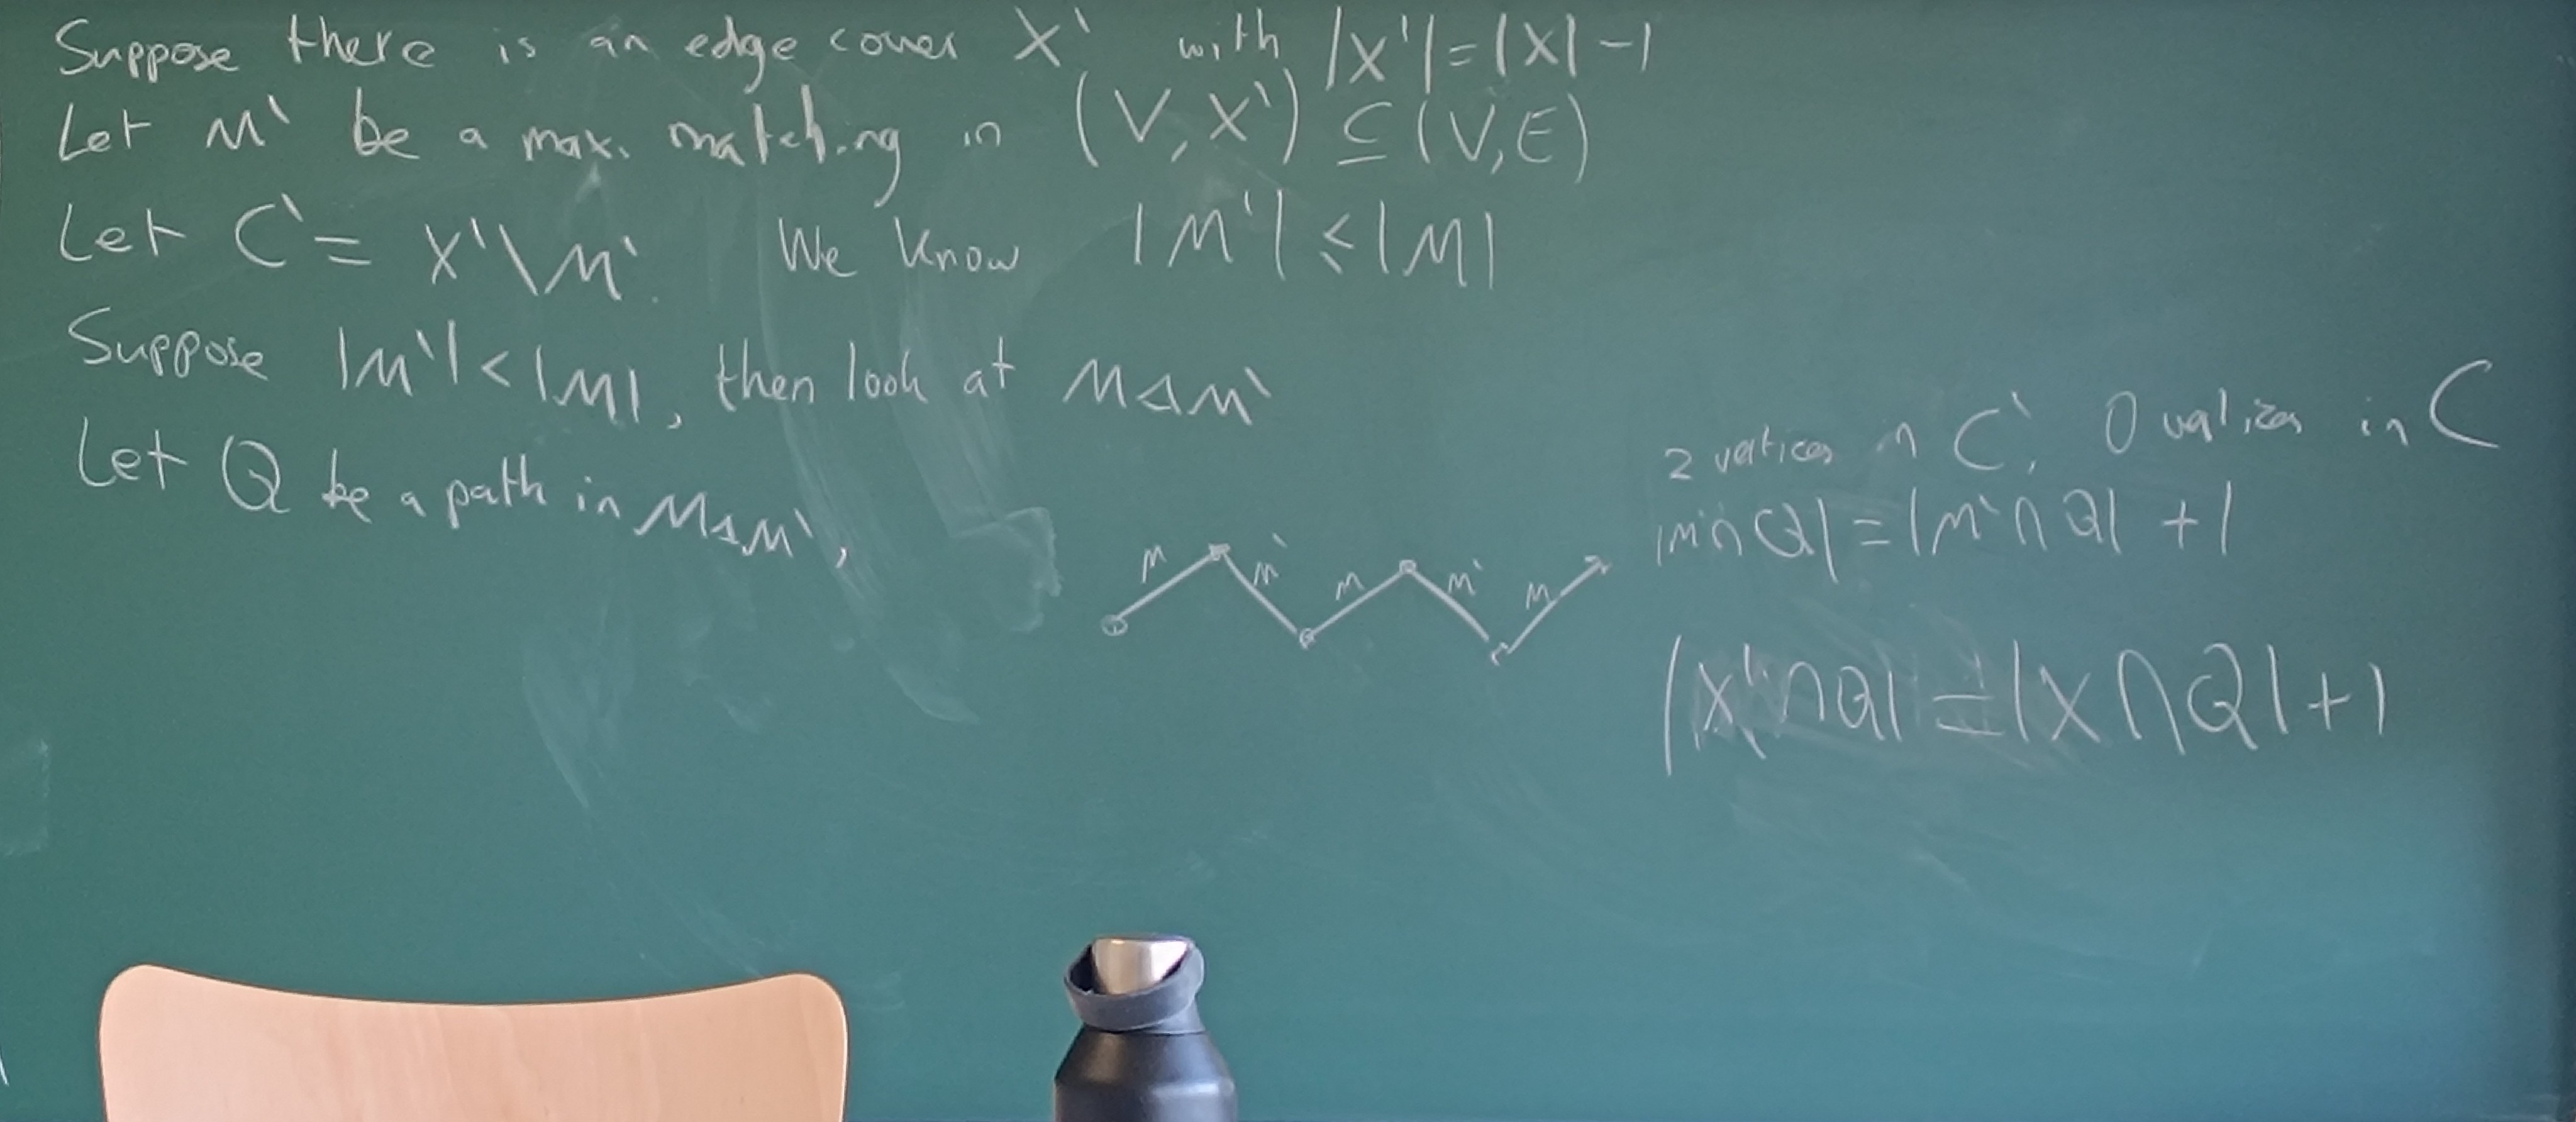 Suppose there is an edge cover X' with |X'| = |X| - 1
Let M' be a max. matching in (V, X') ⊆ (V, E)
Let C' = X' \ M'. We know |M'| ≤ |M|
Suppose |M'| < |M|, then look at M Δ M'
Let Q be a path in M Δ M',
M M' M M' M
2 vertices in C', 0 vertices in C
|M ∩ Q| = |M' ∩ Q| + 1
|X' ∩ Q| = |X ∩ Q| + 1